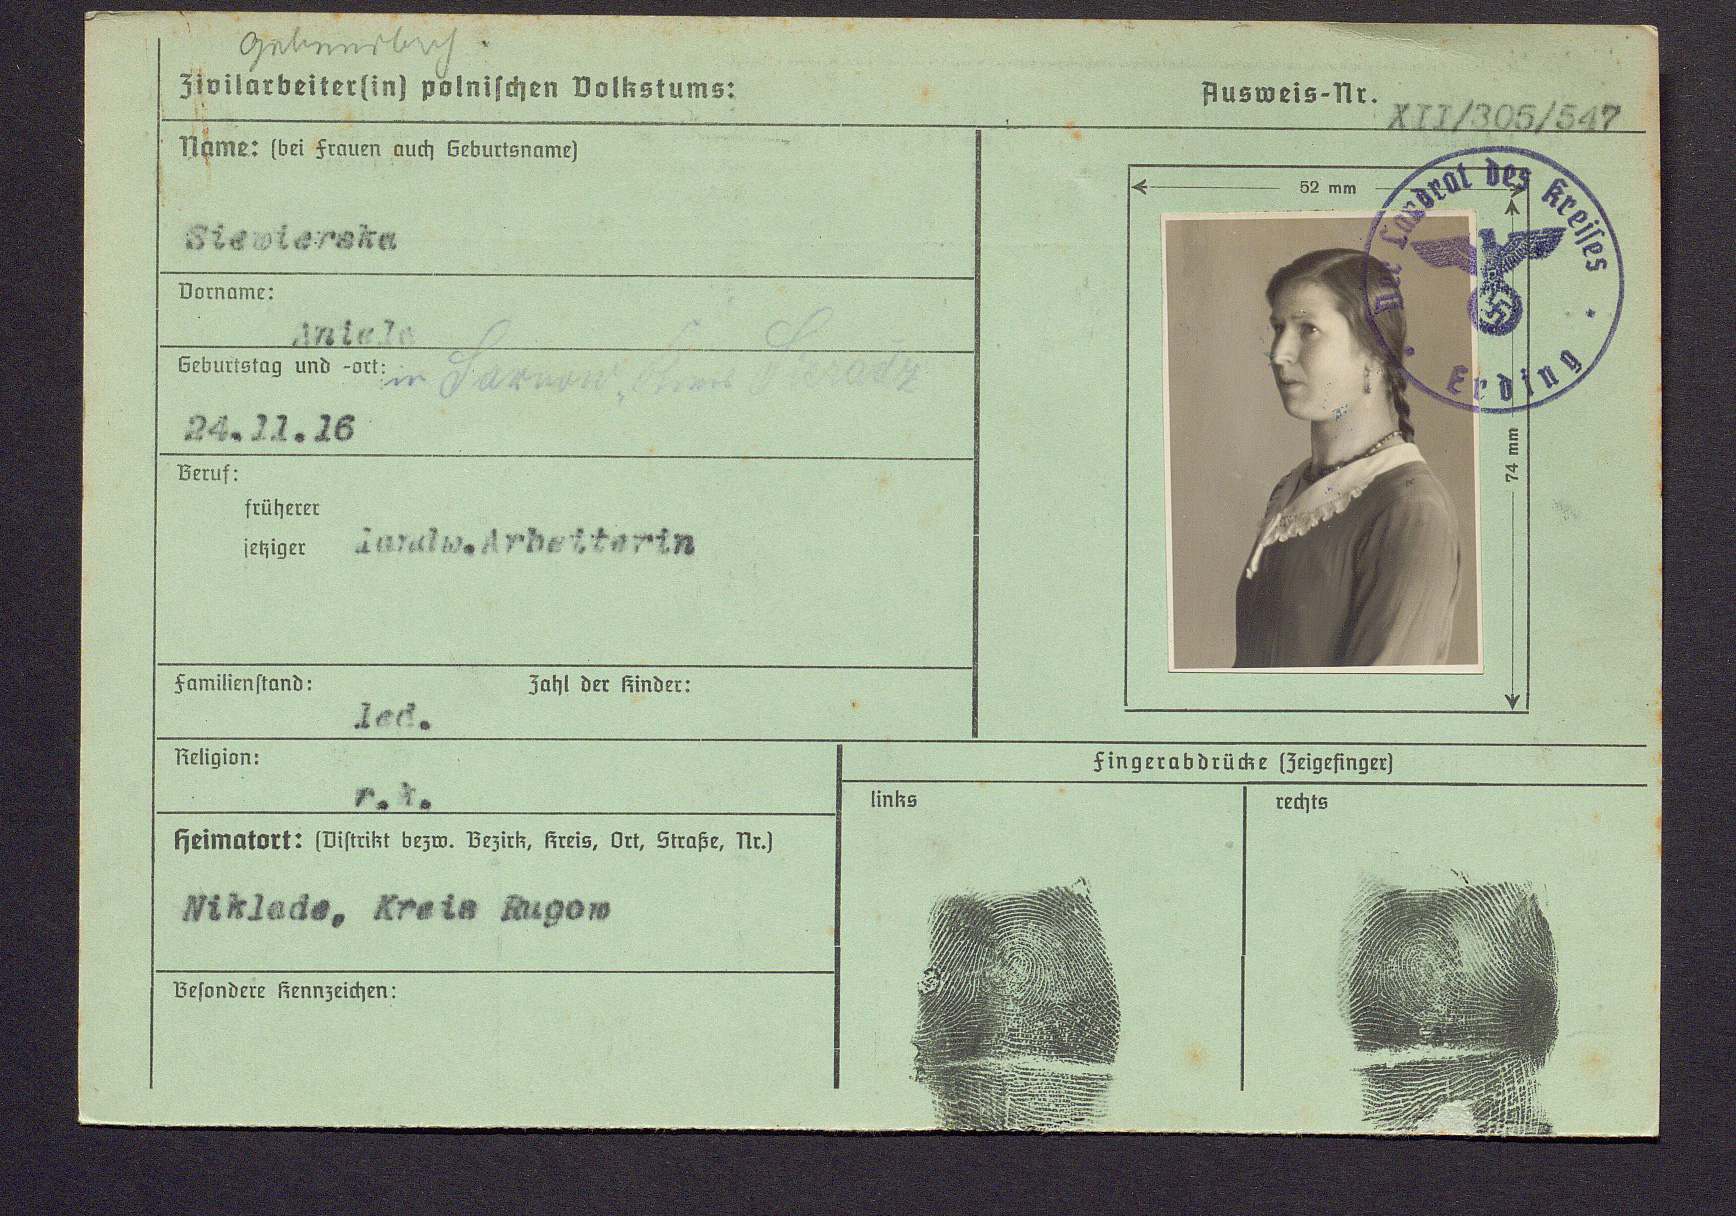 Zivilarbeiter(in) polnischen Volkstums:
Ausweis-Nr. XII/305/547
Name: (bei Frauen auch Geburtsname)
Siewierska
Vorname:
Aniela
Geburtstag und -ort: in Sarnow, Sieradz
24.11.16
Beruf:
früherer
jetziger landw.Arbeiterin
Familienstand: Zahl der Kinder:
led.
Religion:
r.k.
Heimatort: (Distrikt bezw. Bezirk, Kreis, Ort, Straße, Nr.)
Niklade, Kreis Rugow
Besondere Kennzeichen:
52 mm
74 mm
Der Landrat des Kreises
Erding
Fingerabdrücke (Zeigefinger)
links
rechts